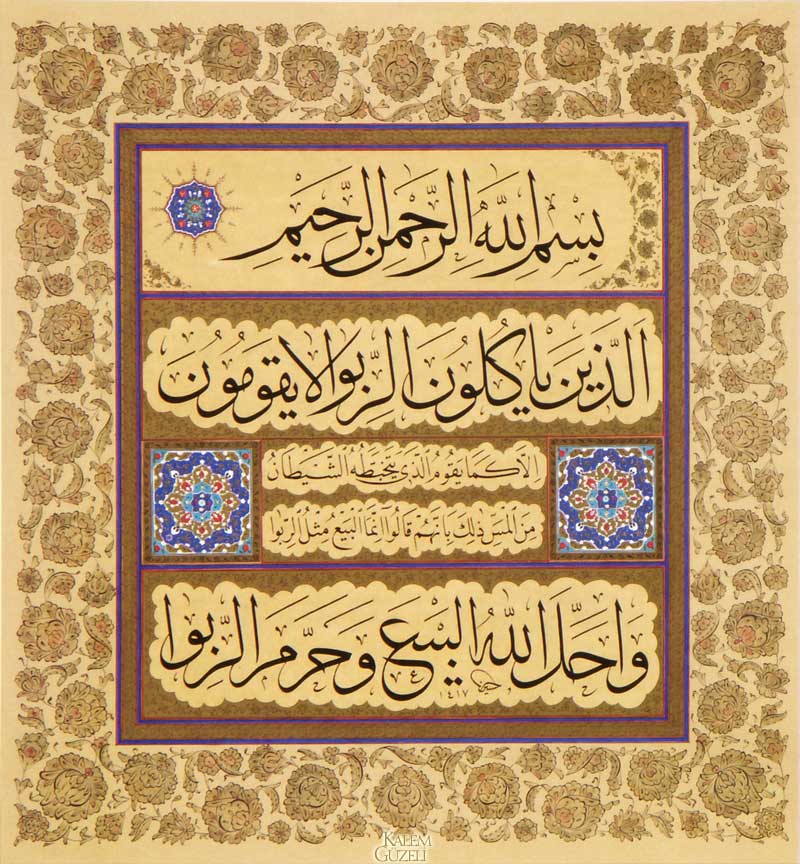 بِسْمِ اللّٰهِ الرَّحْمٰنِ الرَّحِيمِ
اَلَّذِينَ يَأْكُلُونَ الرِّبٰوا لَا يَقُومُونَ
اِلَّا كَمَا يَقُومُ الَّذِي يَتَخَبَّطُهُ الشَّيْطَانُ
مِنَ الْمَسِّ ذٰلِكَ بِاَنَّهُمْ قَالُوا اِنَّمَا الْبَيْعُ مِثْلُ الرِّبٰوا
وَاَحَلَّ اللّٰهُ الْبَيْعَ وَحَرَّمَ الرِّبٰوا
١٤١٧
KALEM
GÜZELİ